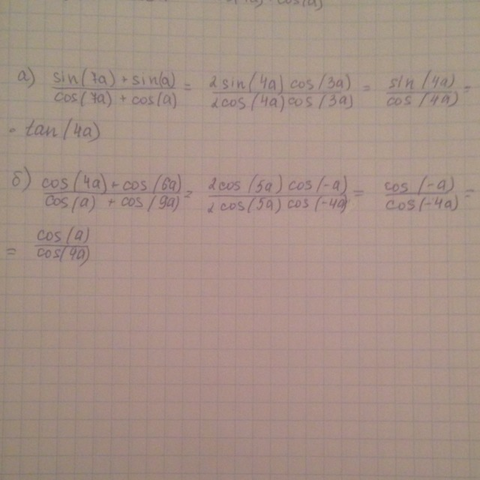 а) sin(7a)+sin(a) / cos(7a)+cos(a) = 2sin(4a)cos(3a) / 2cos(4a)cos(3a) = sin(4a) / cos(4a) =
= tan(4a)
б) cos(4a)+cos(6a) / cos(a)+cos(9a) = 2cos(5a)cos(-a) / 2cos(5a)cos(-4a) = cos(-a) / cos(-4a) =
= cos(a) / cos(4a)